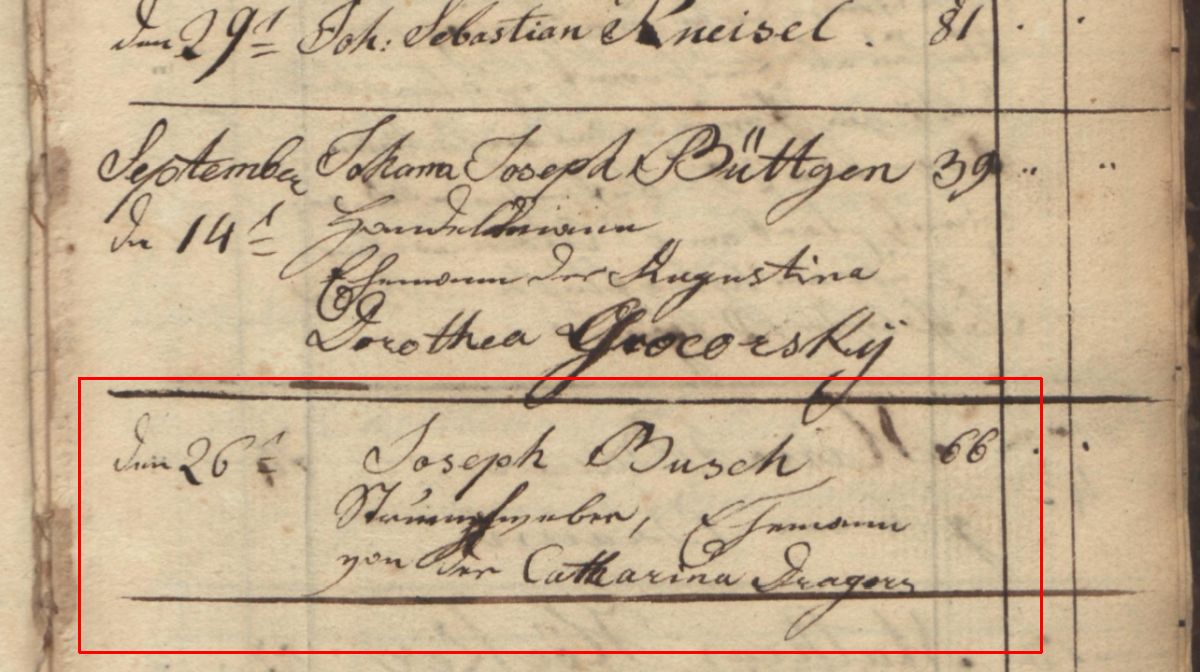 den 29t Joh: Sebastian Kneisel. 81
September Johann Joseph Büttgen 39
den 14t Handelsmann
Ehemann der Augustina
Dorothea Grocorskÿ
den 26t Joseph Busch 66
Strumpfweber, Ehemann
von der Catharina